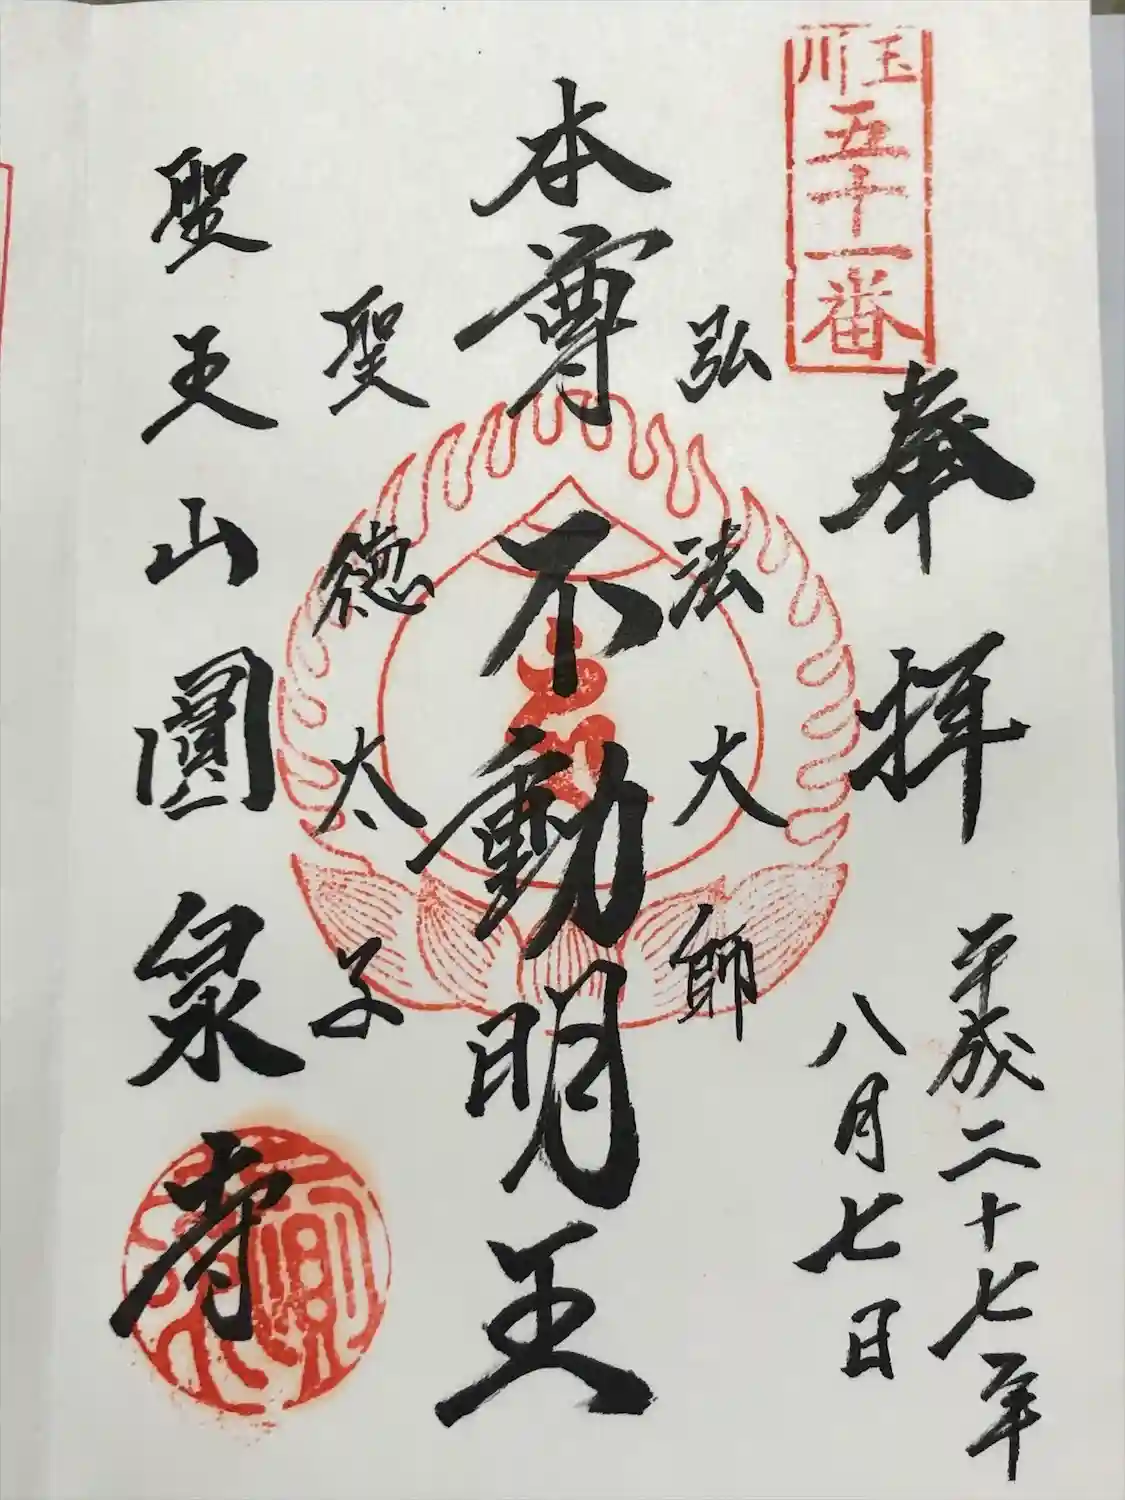 玉川
五十一番
奉拝
平成二十七年
八月七日
弘法大師
本尊不動明王
聖徳太子
聖天山圓泉寺